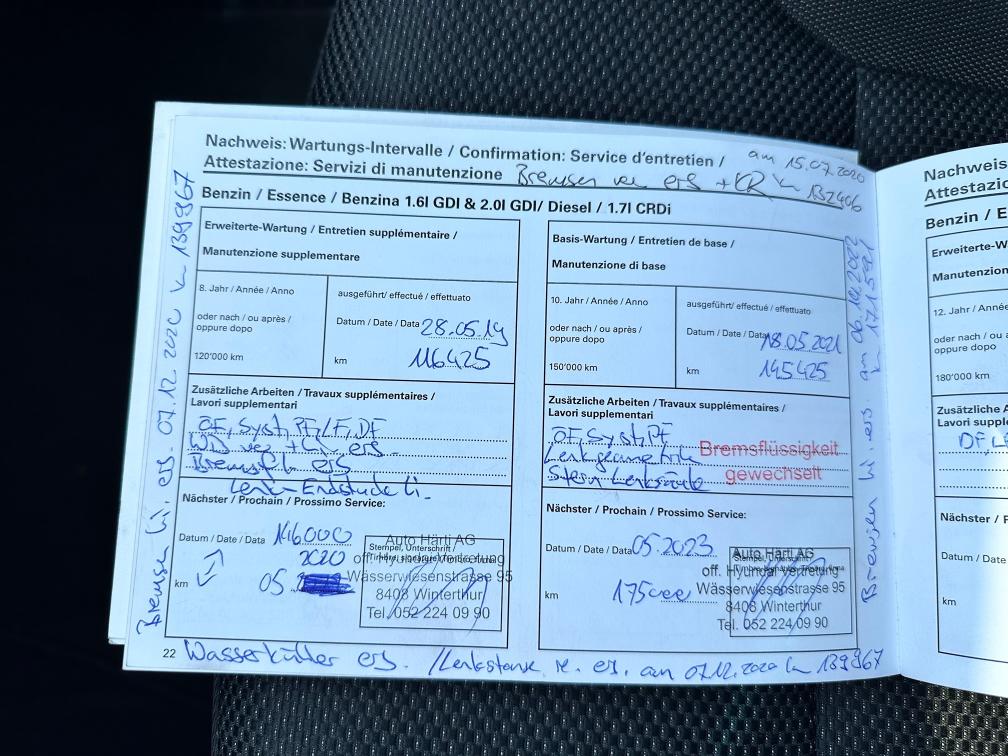 Nachweis: Wartungs-Intervalle / Confirmation: Service d'entretien /
am 15.07.2020
Attestazione: Servizi di manutenzione Bremsen vo ers + KR km 132406
Benzin / Essence / Benzina 1.6l GDI & 2.0l GDI/ Diesel / 1.7l CRDi
Erweiterte-Wartung / Entretien supplémentaire /
Manutenzione supplementare
8. Jahr / Année / Anno
ausgeführt/ effectué / effettuato
oder nach / ou après /
oppure dopo
Datum / Date / Data 28.05.19
120'000 km
km 116425
Zusätzliche Arbeiten / Travaux supplémentaires /
Lavori supplementari
ÖF, Syst, PF, LF, DF
ers.
Bremsfl. ers
Lenk-Endstücke li.
Nächster / Prochain / Prossimo Service:
Datum / Date / Data 146000
2020
km 05
Stempel, Unterschrift /
Auto Härti AG
off. Hyundai Vertretung
Wässerwiesenstrasse 95
8408 Winterthur
Tel. 052 224 09 90
Basis-Wartung / Entretien de base /
Manutenzione di base
10. Jahr / Année / Anno
ausgeführt/ effectué / effettuato
oder nach / ou après /
oppure dopo
Datum / Date / Data 18.05.2021
150'000 km
km 145425
Zusätzliche Arbeiten / Travaux supplémentaires /
Lavori supplementari
ÖF, Syst, PF
Bremsflüssigkeit
gewechselt
Nächster / Prochain / Prossimo Service:
Datum / Date / Data 05.2023
km 175000
Auto Härti AG
off. Hyundai Vertretung
Wässerwiesenstrasse 95
8408 Winterthur
Tel. 052 224 09 90
Bremse hi. ers. 07.12.2020 km 139967
Bremsen hi. ers. am 06.10.2022
km 171591
22 Wasserkühler ers. / Lenkstange re. ers. am 07.12.2020 km 139967
Nachweis
Attestazio
Benzin / E
Erweiterte-W
Manutenzion
12. Jahr / Anné
oder nach / ou a
oppure dopo
180'000 km
Zusätzliche A
Lavori supple
Nächster / Pr
Datum / Date /
km